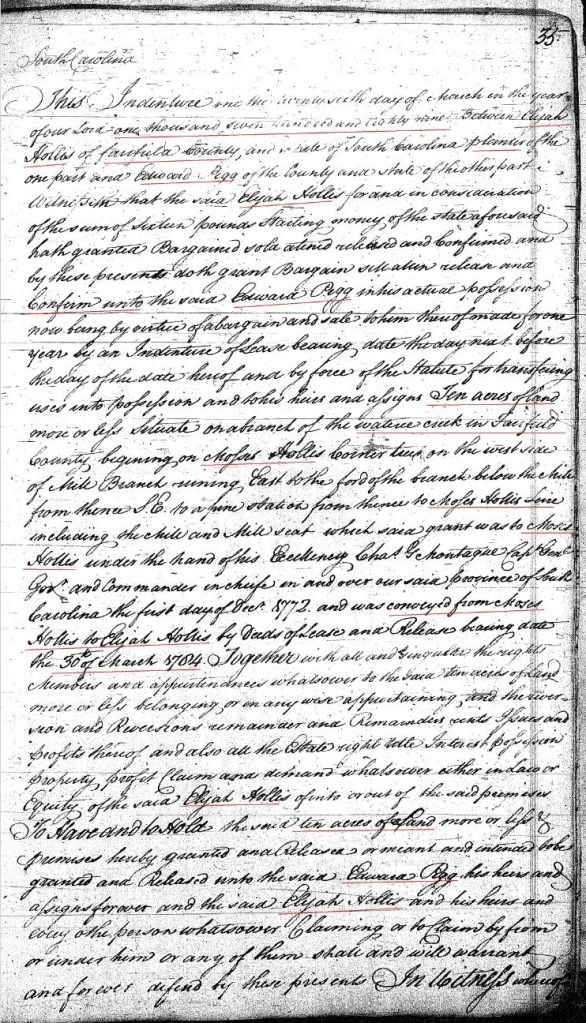 35
South Carolina
This Indenture one the twenty sixth day of March in the year
of our Lord one thousand seven hundred and eighty nine Between Elijah
Hollis of fairfield County, and State of South Carolina planter of the
one part and Edward Pigg of the County and state of the other part
Witnesseth that the said Elijah Hollis for and in consideration
of the sum of Sixteen pounds Starling money of the state aforesaid
hath granted Bargained sold aliened released and Confirmed and
by these presents doth grant Bargain sell alien release and
Confirm unto the said Edward Pigg in his actual possession
now being by virtue of a bargain and sale to him thereof made for one
year by an Indenture of Lease bearing date the day next before
the day of the date hereof and by force of the Statute for transfering
uses into possession and to his heirs and assigns Ten acres of land
more or less Situate on a branch of the wateree creek in Fairfield
County begining on Moses Hollis Corner tree on the west side
of Mill Branch runing East to the ford of the branch below the Mill
from thence S.E. to a pine station from thence to Moses Hollis line
including the Mill and Mill seat which said grant was to Moses
Hollis under the hand of his Excellency Chas. G. Montague Capt. Genl.
Govr. and Commander in chiefe in and over our said province of South
Carolina the first day of Decr. 1772. and was conveyed from Moses
Hollis to Elijah Hollis by Deeds of Lease and Release bearing date
the 30th of March 1784. Together with all and Singular the rights
Members and appurtenances whatsoever to the said ten acres of Land
more or less belonging or in any wise appurtaining, and the rever-
sion and Reversions remainder and Remainders rents Issues and
profits thereof and also all the Estate right title Interest possession
property profit Claim and demand whatsoever either in Law or
Equity of the said Elijah Hollis of into or out of the said premises
To Have and to Hold the said ten acres of Land more or less &
premises hereby granted and Released or meant and intended to be
granted and Released unto the said Edward Pigg his heirs and
assigns forever and the said Elijah Hollis and his heirs and
every othe person whatsoever Claiming or to Claim by from
or under him or any of them shall and will warrant
and forever defend by these presents In Witness whereof